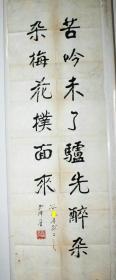 苦吟未了驢先醉朵
朵梅花撲面來